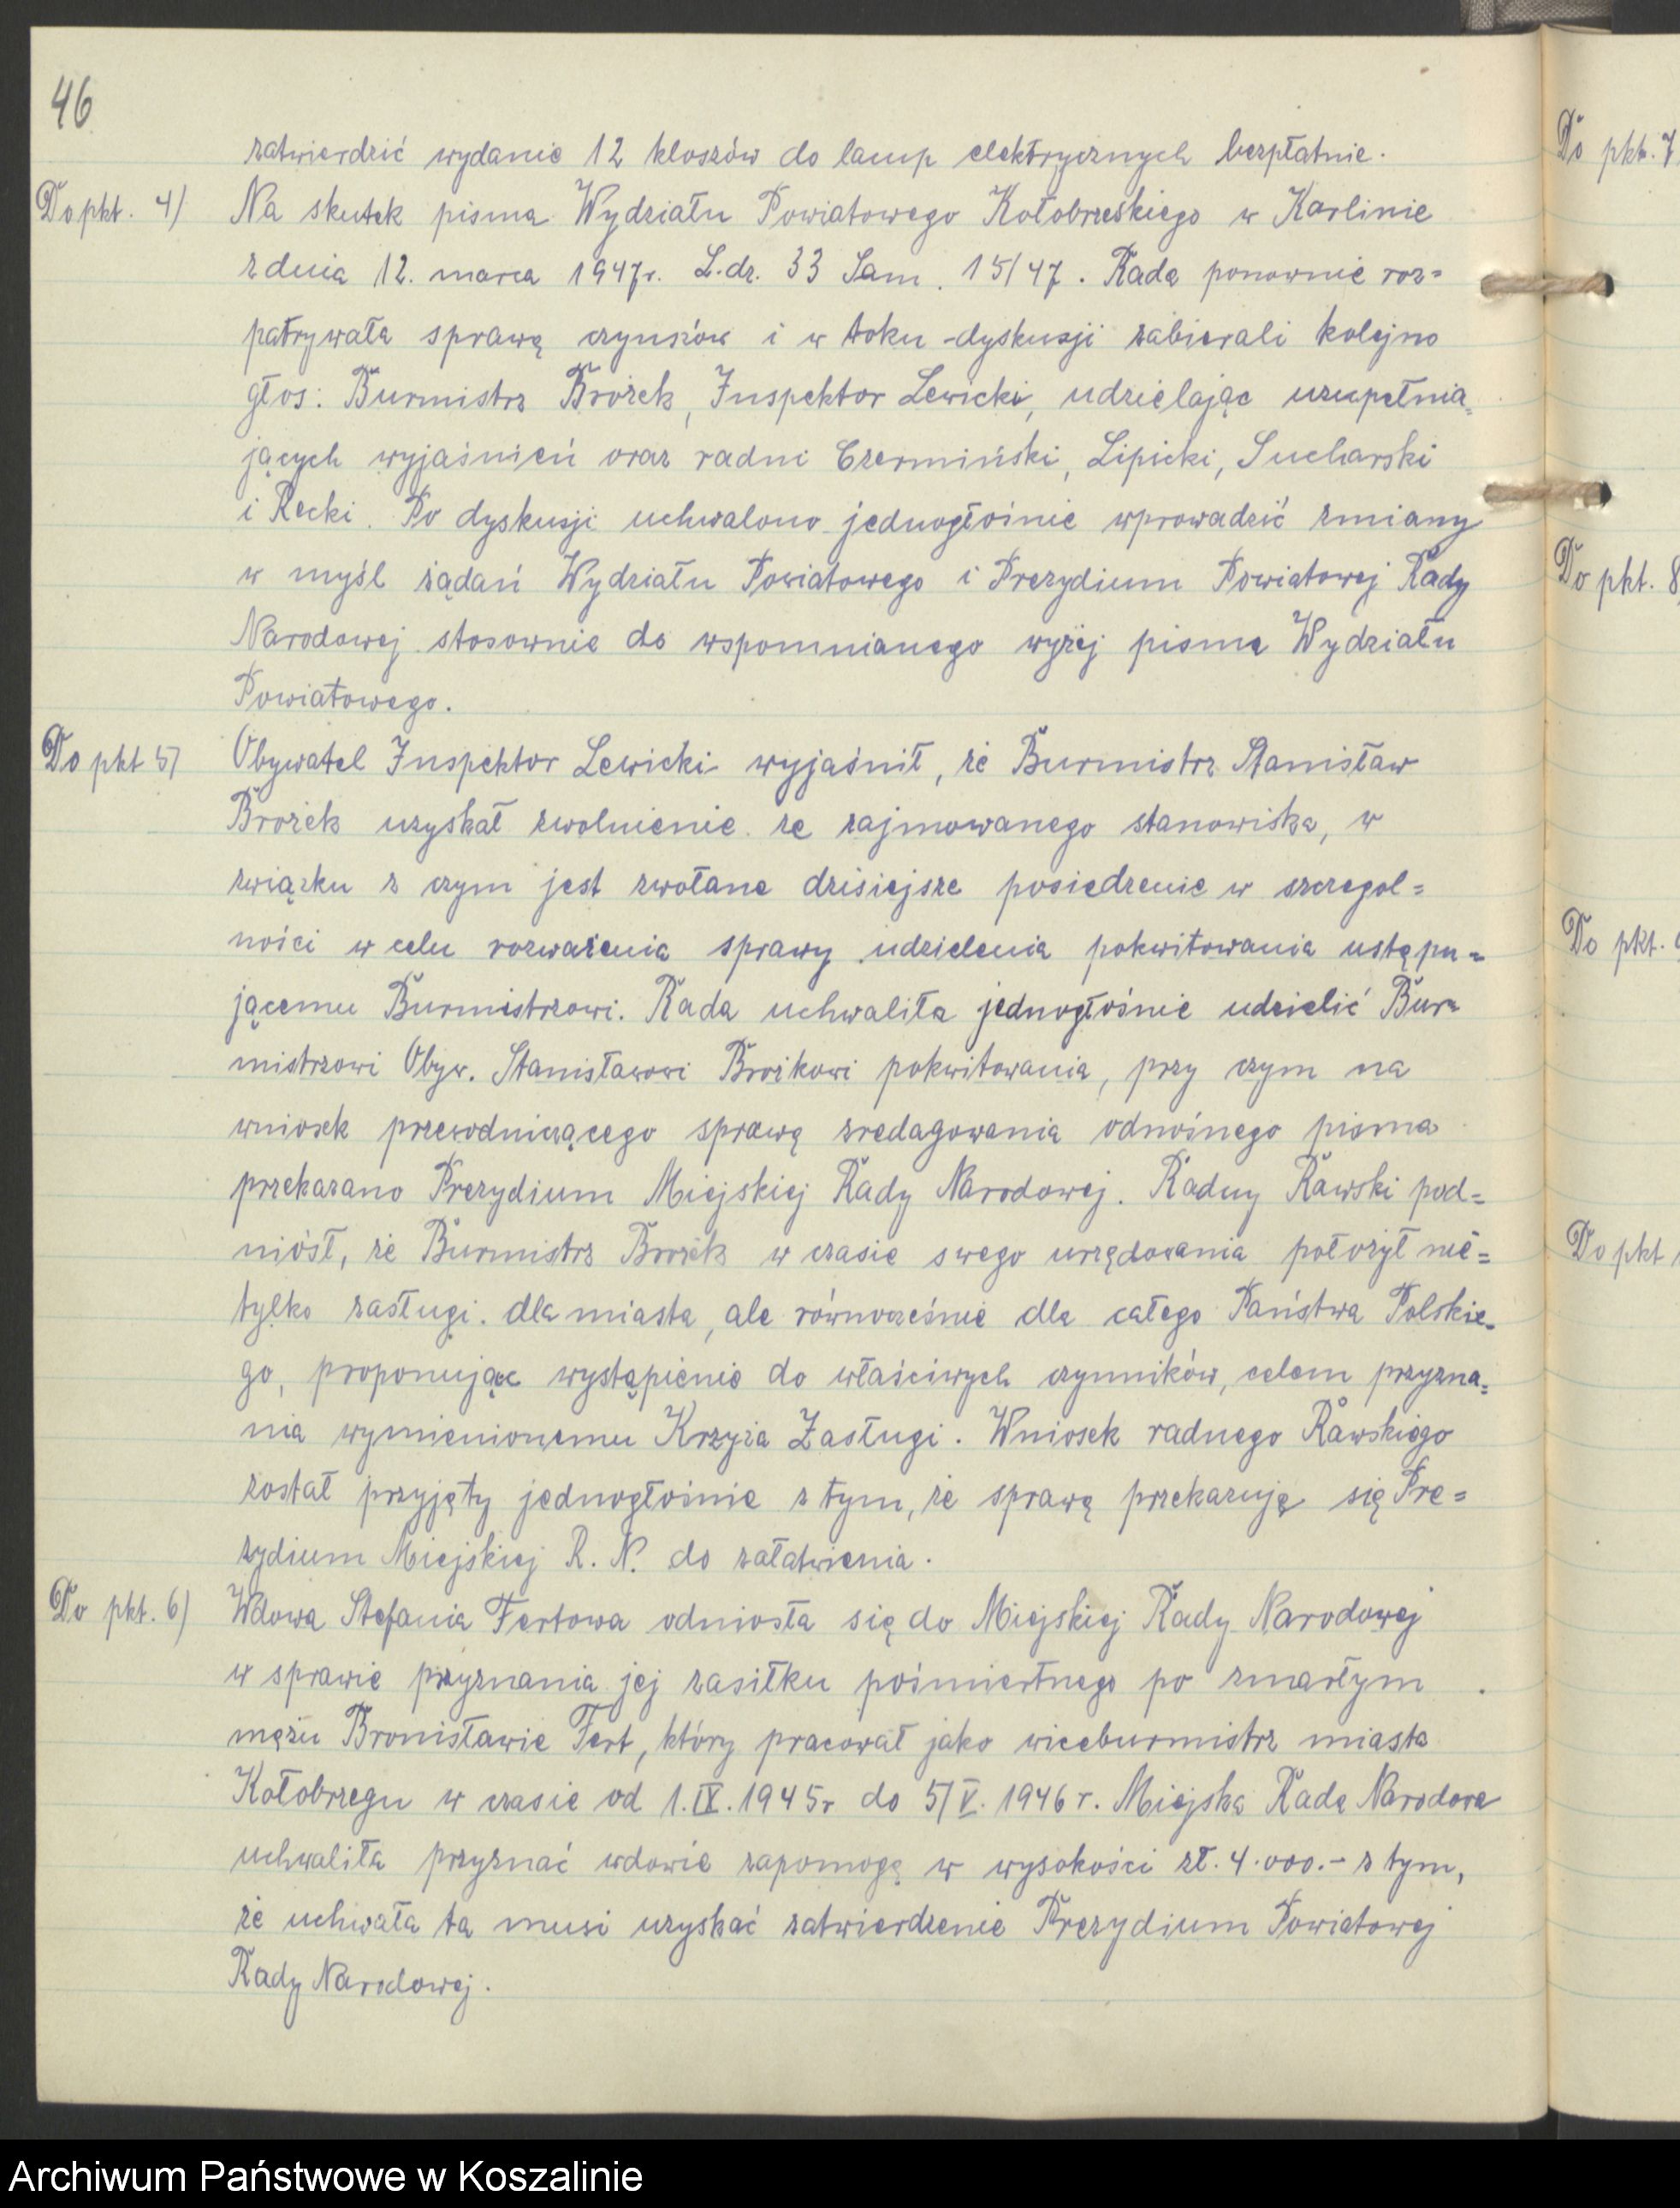 46
zatwierdzić wydanie 12 kloszów do lamp elektrycznych bezpłatnie.
Do pkt. 4) Na skutek pisma Wydziału Powiatowego Kołobrzeskiego w Karlinie
z dnia 12. marca 1947r. L.dz. 33 Sam. 15/47. Rada ponownie roz=
patrywała sprawę czynszów i w toku dyskusji zabierali kolejno
głos: Burmistrz Brożek, Inspektor Lewicki, udzielając uzupełnia=
jących wyjaśnień oraz radni Czermiński, Lipicki, Sucharski
i Recki. Po dyskusji uchwalono jednogłośnie wprowadzić zmiany
w myśl żądań Wydziału Powiatowego i Prezydium Powiatowej Rady
Narodowej stosownie do wspomnianego wyżej pisma Wydziału
Powiatowego.
Do pkt 5) Obywatel Inspektor Lewicki wyjaśnił, że Burmistrz Stanisław
Brożek uzyskał zwolnienie ze zajmowanego stanowiska, w
związku z czym jest zwołane dzisiejsze posiedzenie w szczegol=
ności w celu rozważenia sprawy udzielenia pokwitowania ustępu=
jącemu Burmistrzowi. Rada uchwaliła jednogłośnie udzielić Bur=
mistrzowi Obyw. Stanisławowi Brożkowi pokwitowania, przy czym na
wniosek przewodniczącego sprawę zredagowania odnośnego pisma
przekazano Prezydium Miejskiej Rady Narodowej. Radny Rawski pod=
niósł, że Burmistrz Brożek w czasie swego urzędowania położył nie=
tylko zasługi dla miasta, ale równocześnie dla całego Państwa Polskie=
go, proponując wystąpienie do właściwych czynników, celem przyzna=
nia wymienionemu Krzyża Zasługi. Wniosek radnego Rawskiego
został przyjęty jednogłośnie z tym, że sprawę przekazuje się Pre=
zydium Miejskiej R. N. do załatwienia.
Do pkt. 6) Wdowa Stefania Fertowa odniosła się do Miejskiej Rady Narodowej
w sprawie przyznania jej zasiłku pośmiertnego po zmarłym
mężu Bronisławie Fert, który pracował jako wiceburmistrz miasta
Kołobrzegu w czasie od 1.IX.1945r do 5/V.1946r. Miejska Rada Narodowa
uchwaliła przyznać wdowie zapomogę w wysokości zł. 4.000.- z tym,
że uchwała ta musi uzyskać zatwierdzenie Prezydium Powiatowej
Rady Narodowej.
Do pkt. 7
Do pkt. 8
Do pkt.
Do pkt
Archiwum Państwowe w Koszalinie